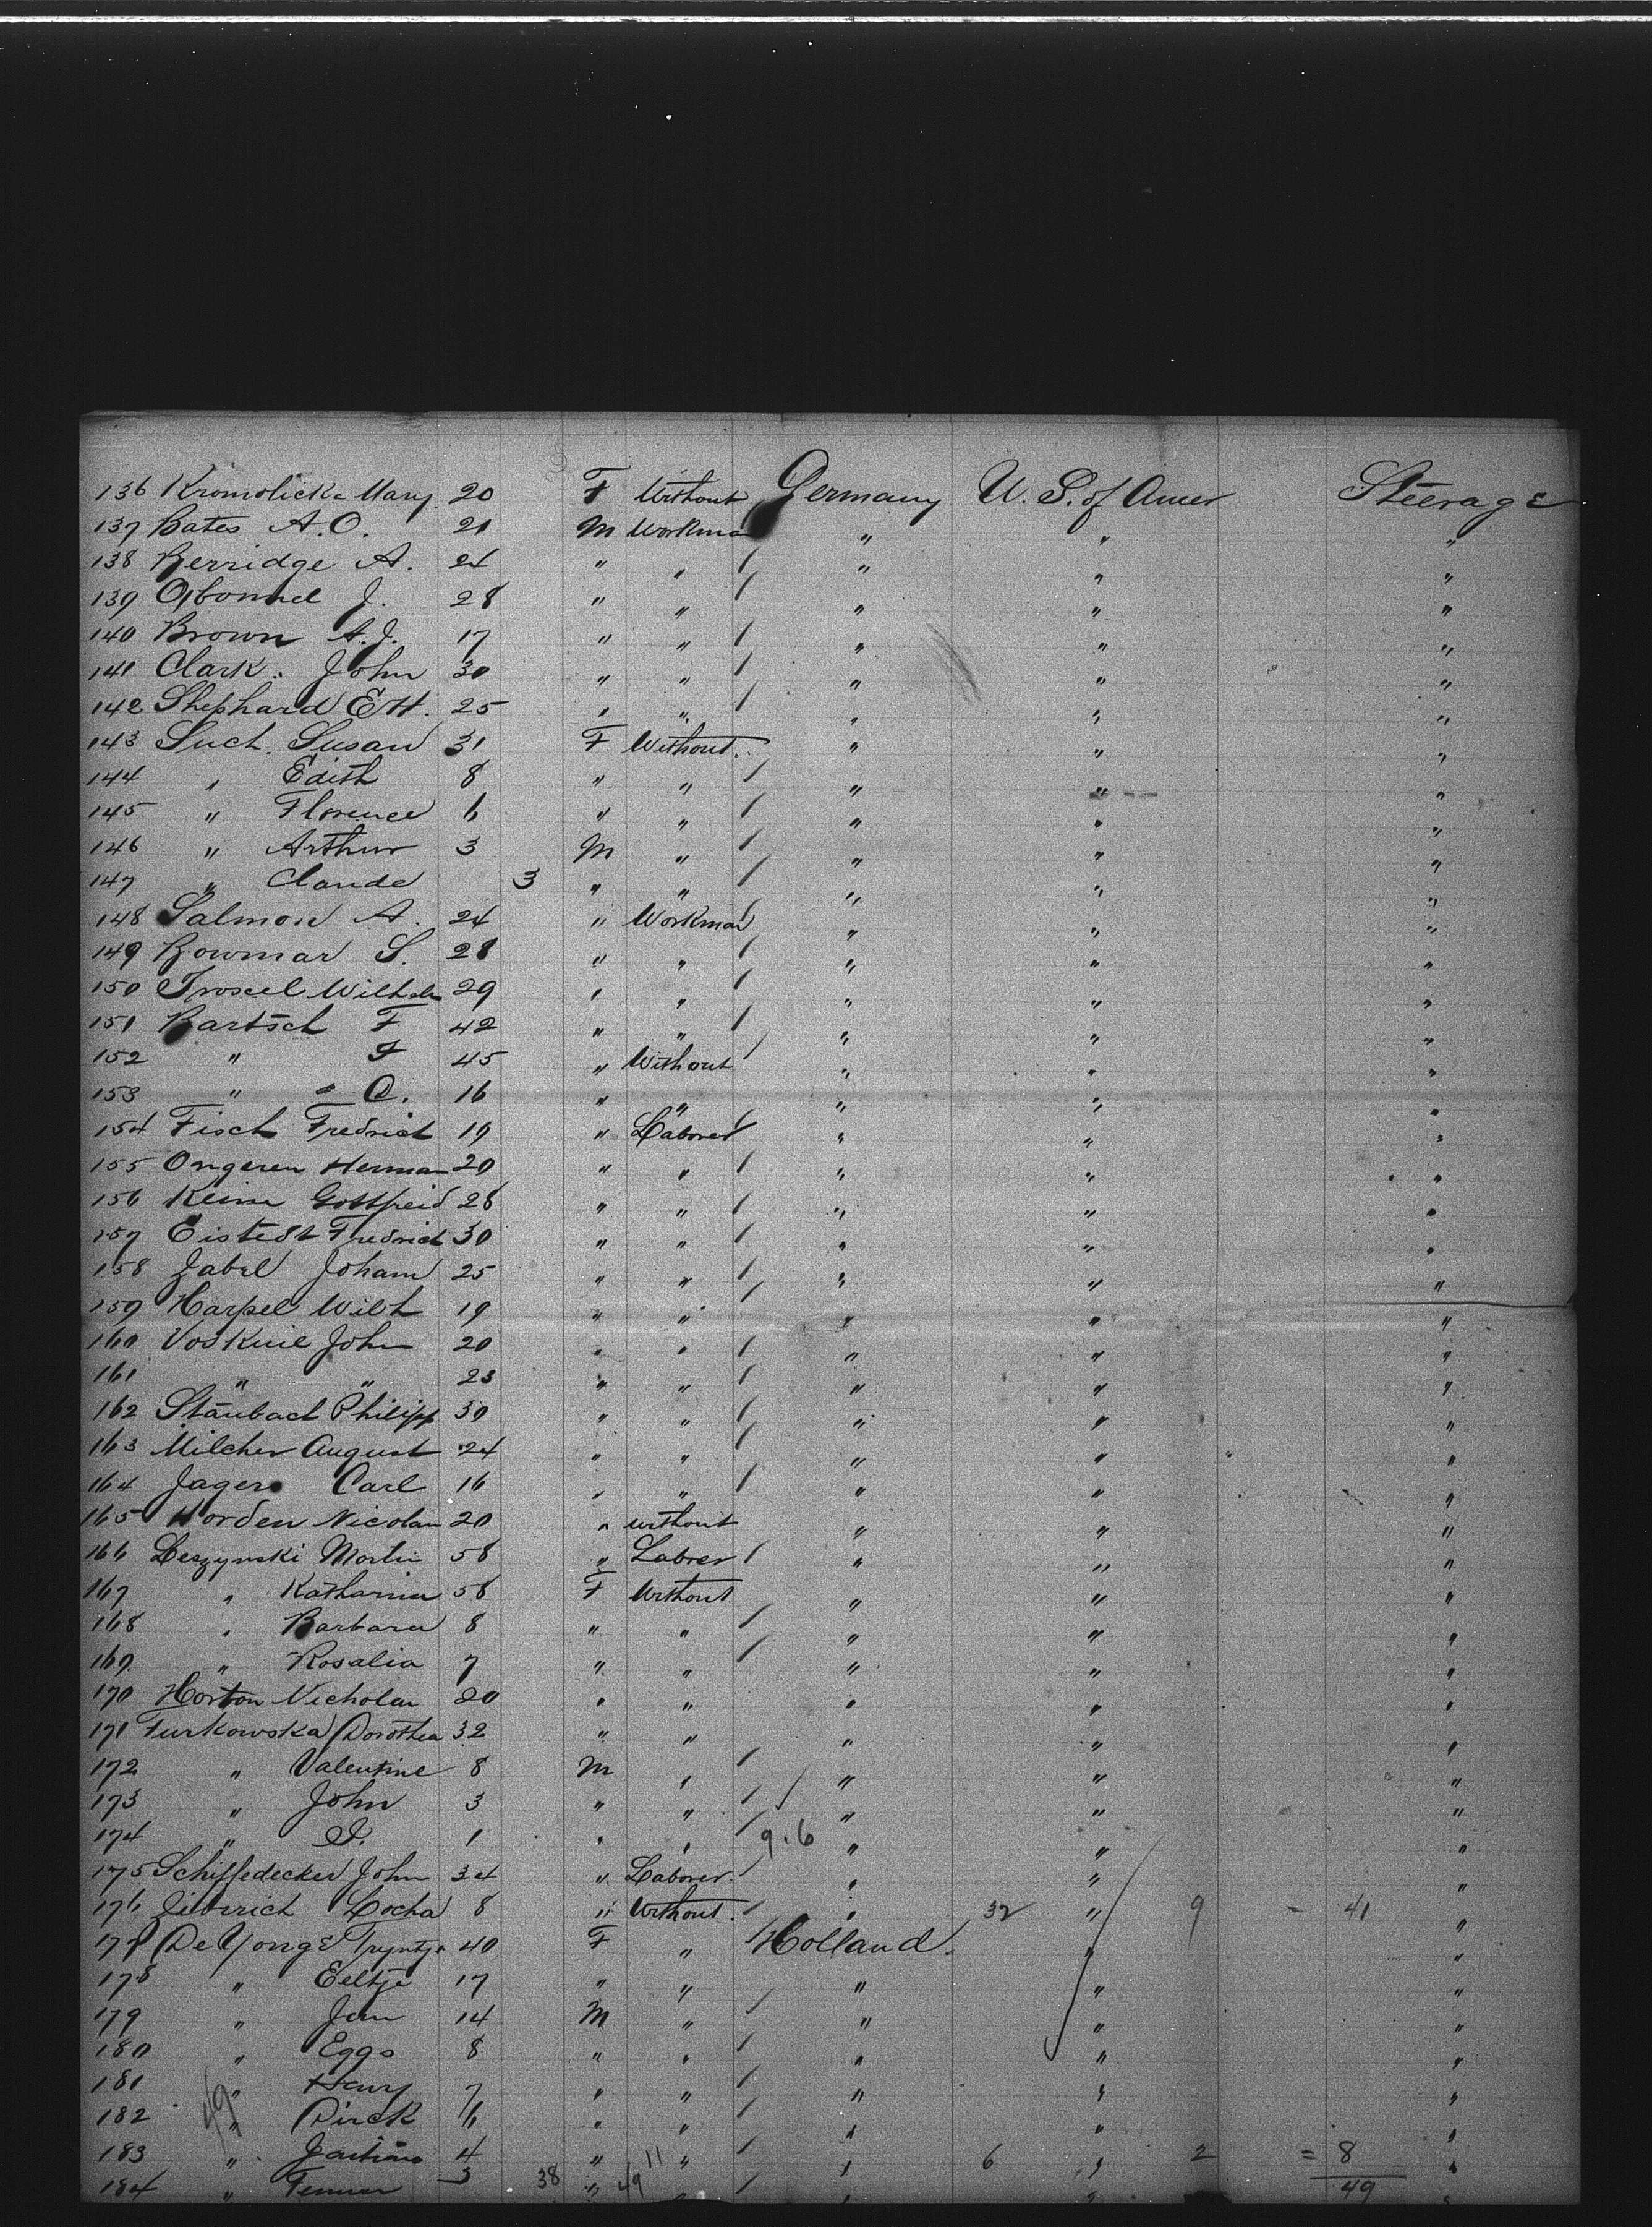 136 Kromolicka Mary 20 F Without Germany U. S. of Amer Steerage
137 Bates A.O. 21 M Workman " " "
138 Berridge A. 24 " " " " "
139 J. 28 " " " " "
140 Brown A.J. 17 " " " " "
141 Clark. John 30 " " " " "
142 Shephard E.H. 25 " " " " "
143 Such. Susan 31 F Without. " " "
144 " Edith 8 " " " " "
145 " Florence 6 " " " " "
146 " Arthur 3 M " " " "
147 " Claude 3 " " " " "
148 Salmon A. 24 " Workman " " "
149 Bowmar S. 28 " " " " "
150 Troscel Wilhelm 29 " " " " "
151 Bartsch F 42 " " " " "
152 " F 45 " Without " " "
153 " " O. 16 " " " " "
154 Fisch Fredrich 19 " Laborer " " "
155 Ongeren Herman 20 " " " " "
156 Keim Gottfreid 28 " " " " "
157 Eistedt Fredrich 30 " " " " "
158 Zabel Johann 25 " " " " "
159 Harpel Wilh 19 " " " " "
160 Voskuil John 20 " " " " "
161 " " 23 " " " " "
162 Staubach Philipp 30 " " " " "
163 Milcher August 24 " " " " "
164 Jager Carl 16 " " " " "
165 Norden Nicolau 20 " without " " "
166 Leszynski Martin 58 " Labrer " " "
167 " Katharina 58 F Without " " "
168 " Barbara 8 " " " " "
169. " Rosalia 7 " " " " "
170 Horton Nicholas 20 " " " " "
171 Turkowska Dorothea 32 " " " " "
172 " Valentine 8 M " " " "
173 " John 3 " " " " "
174 " I. 1 " " 9.6 " " "
175 Schiffedecker John 34 " Laborer. " " "
176 Locha 8 " Without. " 32 " 9 - 41 "
177 De Yonge Tryntje 40 F " Holland. " "
178 " Eeltje 17 " " " " "
179 " Jan 14 M " " " "
180 " Eggo 8 " " " " "
181 " Harry 7 " " " " "
182 49 " Dirck 6 " " " " "
183 " 4 " 11 " " 6 " 2 = 8 "
184 " 3 38 " 49 " " " 49 "